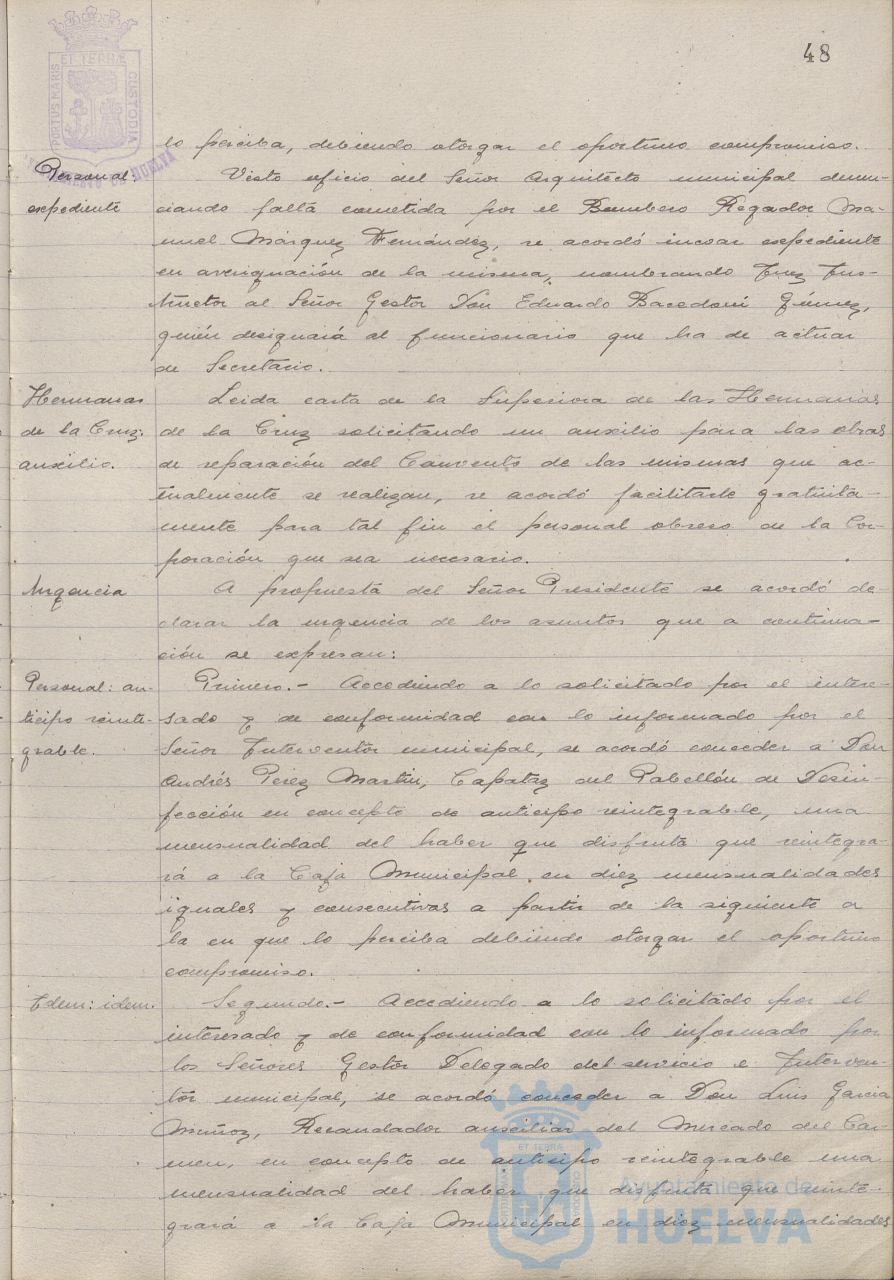 48
PORTUS MARIS ET TERRÆ CUSTODIA
HUELVA
lo perciba, debiendo otorgar el oportuno compromiso.
Personal
expediente
Visto oficio del Señor Arquitecto municipal denun-
ciando falta cometida por el Bombero Regador Ma-
nuel Márquez Fernández, se acordó incoar expediente
en averiguación de la misma, nombrando Juez Ins-
tructor al Señor Gestor Don Eduardo Gómez,
quién designará al funcionario que ha de actuar
de Secretario.
Hermanas
de la Cruz:
auxilio.
Leida carta de la Superiora de las Hermanas
de la Cruz solicitando un auxilio para las obras
de reparación del Convento de las mismas que ac-
tualmente se realizan, se acordó facilitarle gratuita-
mente para tal fin el personal obrero de la Cor-
poración que sea necesario.
Urgencia
A propuesta del Señor Presidente se acordó de-
clarar la urgencia de los asuntos que a continua-
ción se expresan:
Personal: an-
ticipo reinte-
grable.
Primero.- Accediendo a lo solicitado por el intere-
sado y de conformidad con lo informado por el
Señor Interventor municipal, se acordó conceder a Don
Andrés Pérez Martin, Capataz del Pabellón de Desin-
fección en concepto de anticipo reintegrable, una
mensualidad del haber que disfruta que reintegra-
rá a la Caja Municipal en diez mensualidades
iguales y consecutivas a partir de la siguiente a
la en que lo perciba debiendo otorgar el oportuno
compromiso.
Idem: idem.
Segundo.- Accediendo a lo solicitado por el
interesado y de conformidad con lo informado por
los Señores Gestor Delegado del servicio e Interven-
tor municipal, se acordó conceder a Don Luis Garcia
Muñoz, Recaudador auxiliar del Mercado del Car-
men, en concepto de anticipo reintegrable una
mensualidad del haber que disfruta que reinte-
grará a la Caja Municipal en diez mensualidades
Ayuntamiento de
HUELVA